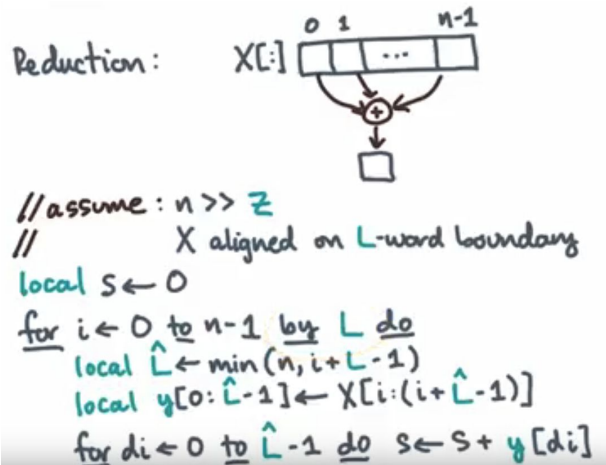 0 1 n-1
Reduction: X[:] ...
+
//assume: n >> Z
// X aligned on L-word boundary
local s ← 0
for i ← 0 to n-1 by L do
local L̂ ← min(n, i+L-1)
local y[0:L̂-1] ← X[i:(i+L̂-1)]
for di ← 0 to L̂-1 do s ← s + y[di]